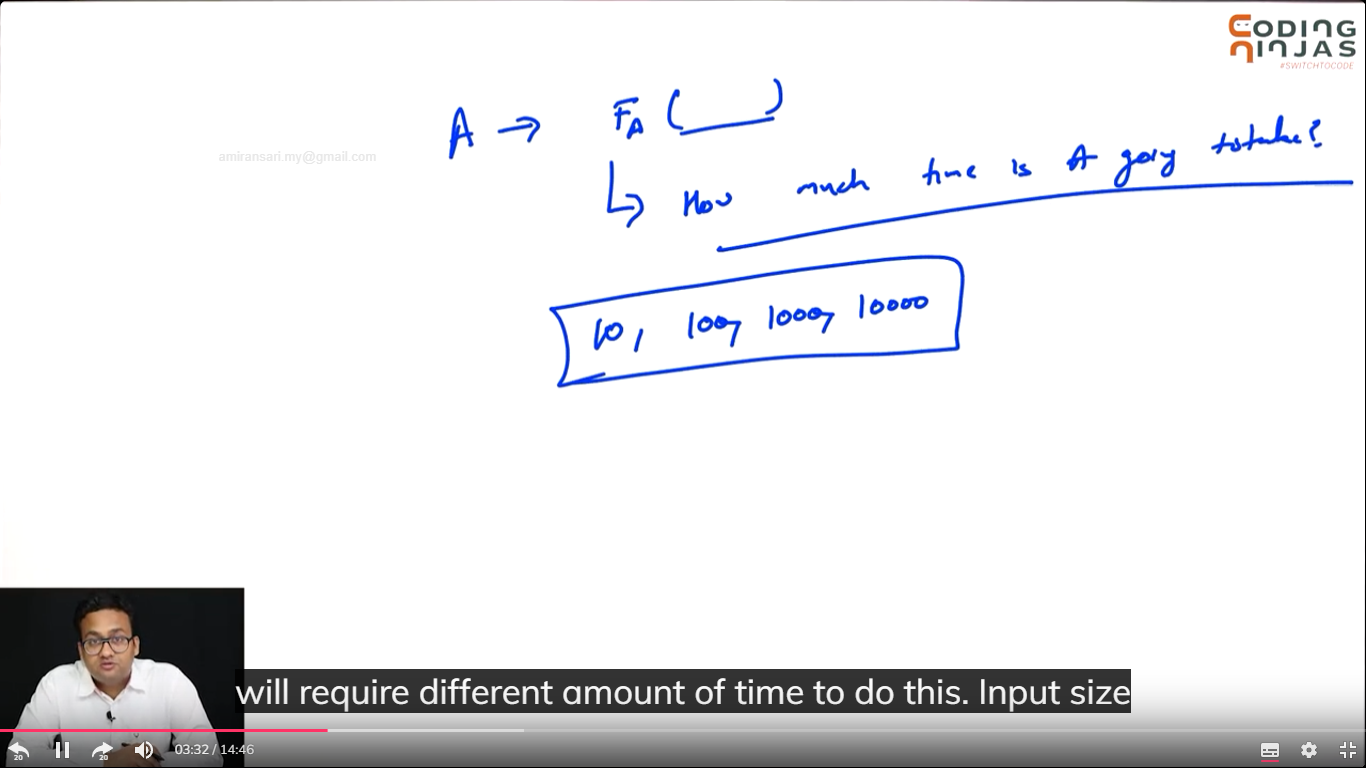 CODING
NINJAS
#SWITCHTOCODE
A → FA ( )
amiransari.my@gmail.com
How much time is A going to take?
10, 100, 1000, 10000
will require different amount of time to do this. Input size
20 20 03:32 / 14:46